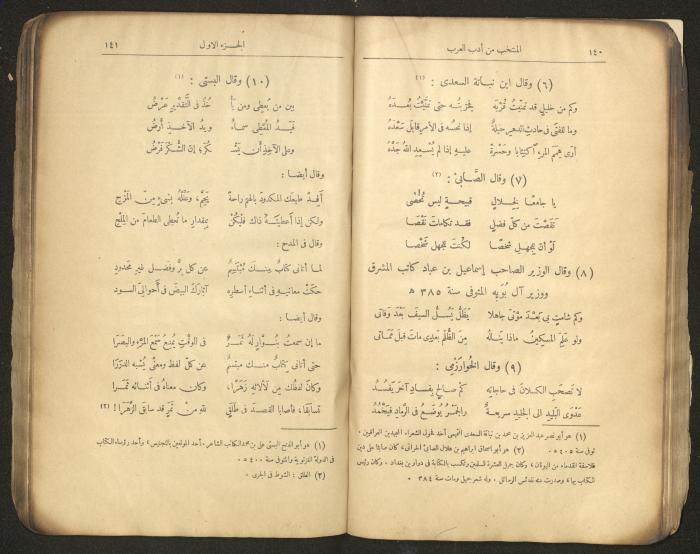 ١٤٠
المنتخب من أدب العرب
(٦) وقال ابن نباتة السعدى : (١)
وكم من خليل قد تمنيت قربه
وما للفتى فى حادث الدهر حيلة إذا نحسه فى الأمر قابل سعده
أرى همم المرء اكتئابا وحسرة عليه إذا لم يسعد الله جده
(٧) وقال الصابى : (٢)
يا جامعا لخلال قبيحة ليس تحصى
نقصت من كل فضل فقد تكاملت نقصا
لو أن للجهل شخصا لكنت للجهل شخصا
(٨) وقال الوزير الصاحب إسماعيل بن عباد كاتب المشرق
ووزير آل بويه المتوفى سنة ٣٨٥ ه
وكم شامت بى بعد موتى جاهلا يظل يسل السيف بعد وفاتى
ولو علم المسكين ماذا يناله من الظلم بعدى مات قبل مماتى
(٩) وقال الخوارزمى :
لا تصحب الكسلان فى حاجاته كم صالح بفساد آخر يفسد
عدوى البليد إلى الجليد سريعة والجمر يوضع فى الرماد فيخمد
(١) هو أبو نصر عبد العزيز بن محمد بن نباتة السعدى التميمى أحد فحول الشعراء المجيدين العراقيين .
توفى سنة ٤٠٥ ه . (٢) هو أبو اسحاق ابراهيم بن هلال الصابئ الحرانى، كان صابئا على دين
فلاسفة القدماء من اليونان، وكان جميل العشرة للمسلمين وتكسب بالكتابة فى دواوين بغداد . وكان رئيس
الكتاب بها، وصدرت عنه نفائس الرسائل . وله شعر جميل ومات سنة ٣٨٤ .
الجزء الاول
١٤١
(١٠) وقال البستى : (١)
بين من يعطى ومن يأ خذ فى التقدير عرض
فيد المعطى سماء ويد الآخذ أرض
وعلى الآخذ أن يشـ ـكر؛ إن الشكر فرض
وقال أيضا :
أفد طبعك المكدود بالهم راحة يجم، وعلله بشىء من المزح
ولكن إذا أعطيته ذاك فليكن بمقدار ما تعطى الطعام من الملح
وقال فى المدح :
لما أتانى كتاب منك مبتسم عن كل بر وفضل غير محدود
حكت معانيه فى أثناء أسطره آثارك البيض فى أحوالى السود
وقال أيضا :
ما إن سمعت بنوار له ثمر فى الوقت يمتع سمع المرء والبصرا
حتى أتانى كتاب منك مبتسم عن كل لفظ ومعنى يشبه الدررا
وكان لفظك من لألائه زهرا، وكان معناه فى أثنائه ثمرا
تسابقا، فأصابا القصد فى طلق لله من ثمر قد سابق الزهرا ! (٢)
(١) هو أبو الفتح البستى على بن محمد الكاتب الشاعر . أحد المولعين بالتجنيس، وأحد رؤساء الكتاب
فى الدولة الغزنوية والمتوفى سنة ٤٠٠ ه .
(٢) الطلق : الشوط فى الجرى .